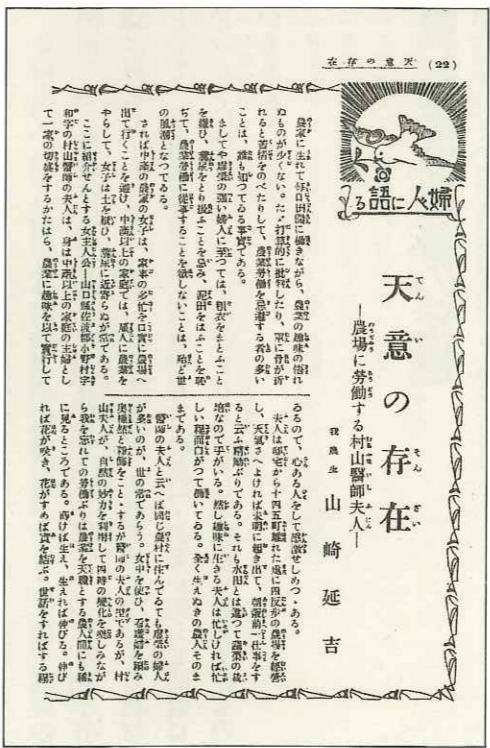 (22)
天意の存在
婦人に語る
天意の存在
―農場に労働する村山醫師夫人―
我農生 山崎延吉
農家に生れて毎日田園に働きながら、農業の趣味の悟れ
ぬものが少くない。たゞ打算的に批判したり、軍に骨が折
れると苦情をのべたりして、農業労働を忌避する者の多い
ことは、誰も知つてゐる事実である。
ましてや虚栄の強い婦人に至つては、粗衣をまとふこと
を嫌ひ、糞尿をとり扱ふことを忌み、泥田をはふことを恥
ぢて、農業労働に従事することを欲しないことは、殆ど世
の風潮となつてゐる。
されば中流の農家の女子は、家事の多忙を口實に農場へ
出て行くことを避け、中流以上の家庭では、雇人に農業を
やらして、女子は土を厭ひ、糞尿に近寄らぬが常である。
ここに紹介せんとする女主人公―山口縣佐波郡小野村字
和字の村山醫師の夫人は、身は中流以上の家庭の主婦とし
て一家の切盛をするかたはら、農業に趣味を以て實行して
ゐるので、心ある人をして感激せしめつゝある。
夫人は毎宅から十四五町離れた處に四反歩の農場を経營
し、天氣さへよければ未明に起き出て、朝飯前一仕事をす
ると云ふ精励ぶりである。それも水田とは違つて蔬菜の栽
培なので手がいる。然し趣味に生きる夫人は忙しければ忙
しい程面白がつて働いてゐる。全く生えぬきの農人そのま
まである。
醫師の夫人と云へば同じ農村に住んでゐても虚栄の婦人
が多いのが、世の常であらう。女中を使ひ、看護婦を頼み
奥様然と粉飾をこととするが醫師の夫人の型であるが、村
山夫人が、自然の妙方を利用して四時の變化を楽しみなが
ら我を忘れての労働ぶりは農業を天職とする農人間にも稀
に見るところである。蒔けば生え、生えれば伸びる。伸び
れば花が咲き、花がすめば實を結ぶ。世話をすればする程